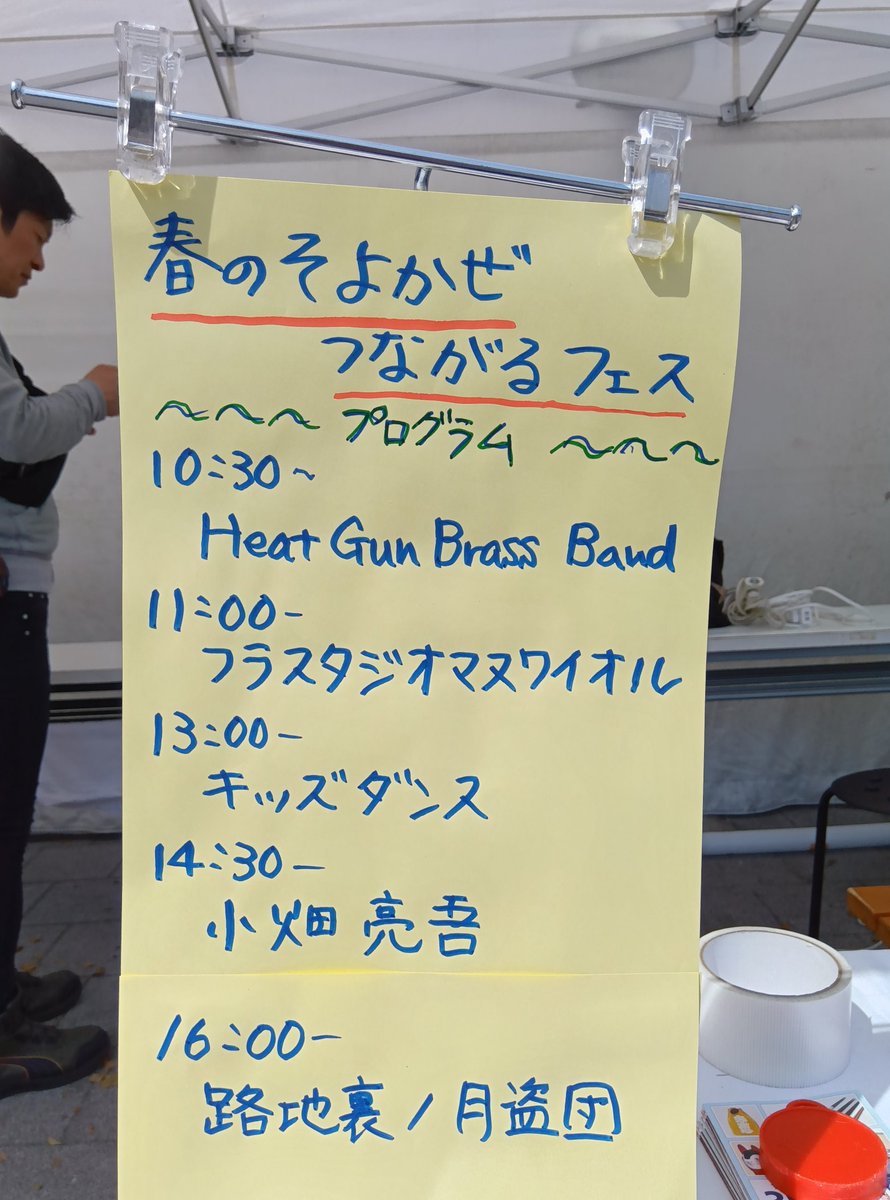 春のそよかぜ
つながるフェス
~~~ プログラム ~~~
10:30~
Heat Gun Brass Band
11:00-
フラスタジオマヌワイオル
13:00-
キッズダンス
14:30-
小畑亮吾
16:00-
路地裏ノ月盗団